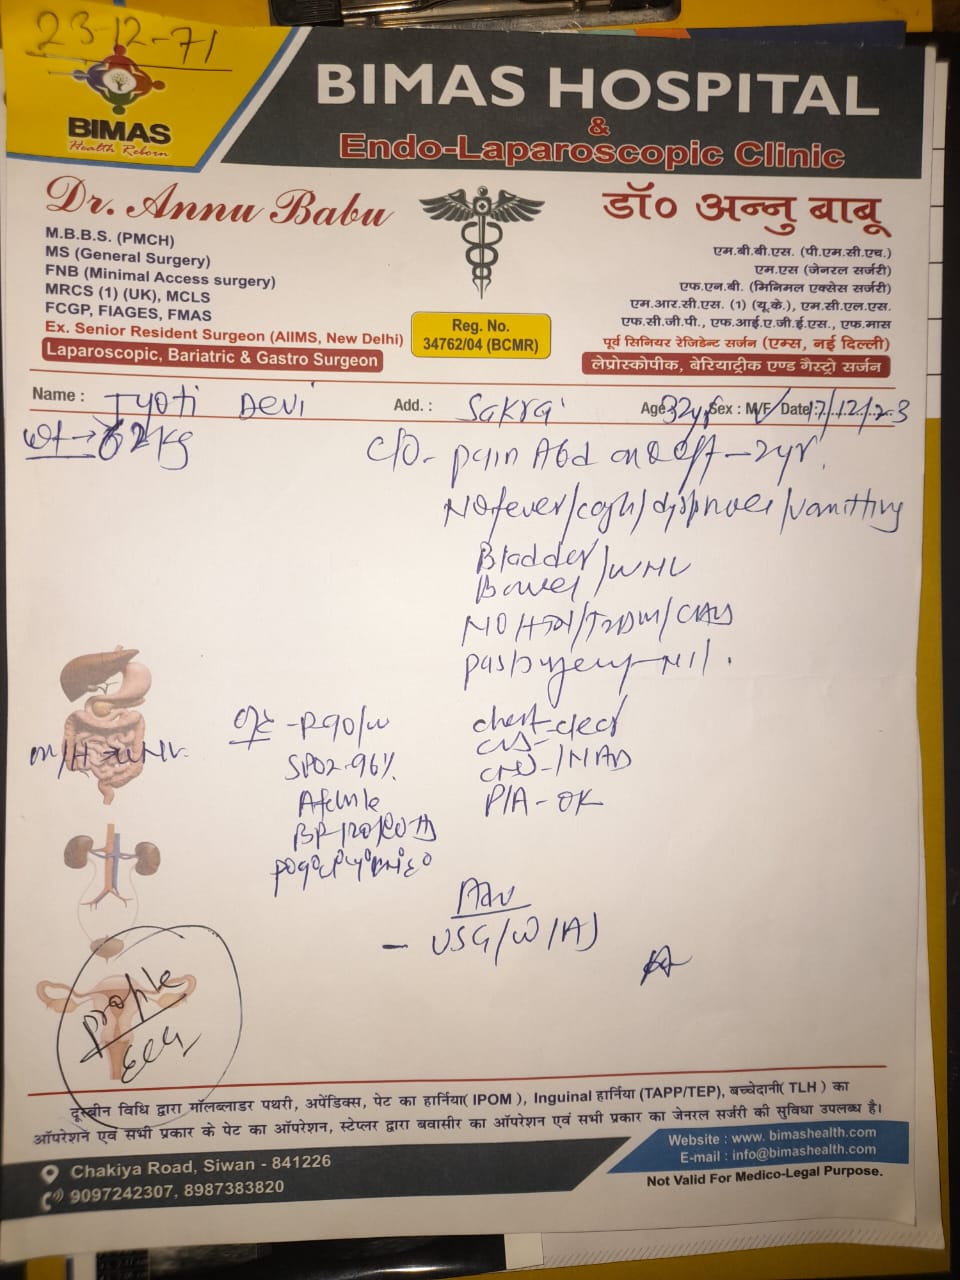 23-12-71
BIMAS
Health Reborn
BIMAS HOSPITAL
&
Endo-Laparoscopic Clinic
Dr. Annu Babu
M.B.B.S. (PMCH)
MS (General Surgery)
FNB (Minimal Access surgery)
MRCS (1) (UK), MCLS
FCGP, FIAGES, FMAS
Ex. Senior Resident Surgeon (AIIMS, New Delhi)
Laparoscopic, Bariatric & Gastro Surgeon
Reg. No.
34762/04 (BCMR)
डॉ० अन्नु बाबू
एम.बी.बी.एस. (पी.एम.सी.एच.)
एम.एस (जेनरल सर्जरी)
एफ.एन.बी. (मिनिमल एक्सेस सर्जरी)
एम.आर.सी.एस. (1) (यू.के.), एम.सी.एल.एस.
एफ.सी.जी.पी., एफ.आई.ए.जी.ई.एस., एफ.मास
पूर्व सिनियर रेजिडेन्ट सर्जन (एम्स, नई दिल्ली)
लेप्रोस्कोपीक, बेरियाट्रीक एण्ड गैस्ट्रो सर्जन
Name : Jyoti Devi Add. : Sakrai Age 32yr Sex : M/F Date : 17/12/23
wt → 62kg
C/O - pain Abd on & off - 2yr.
No fever/cough/dyspnoea/vomitting
Bladder
Bowel /WNL
NO HTN/T2DM/CAD
past surgery - Nil.
M/H → WNL
O/E - P 90/m
SPO2 - 96%
Afebrile
BP - 120/80
chest - clear
CVS -
CNS - /NAD
P/A - OK
Adv
- USG/W/A
Profile
ECG
दूरबीन विधि द्वारा गॉलब्लाडर पथरी, अपेंडिक्स, पेट का हार्निया( IPOM ), Inguinal हार्निया (TAPP/TEP), बच्चेदानी( TLH ) का
ऑपरेशन एवं सभी प्रकार के पेट का ऑपरेशन, स्टेप्लर द्वारा बवासीर का ऑपरेशन एवं सभी प्रकार का जेनरल सर्जरी की सुविधा उपलब्ध है।
Chakiya Road, Siwan - 841226
9097242307, 8987383820
Website : www. bimashealth.com
E-mail : info@bimashealth.com
Not Valid For Medico-Legal Purpose.